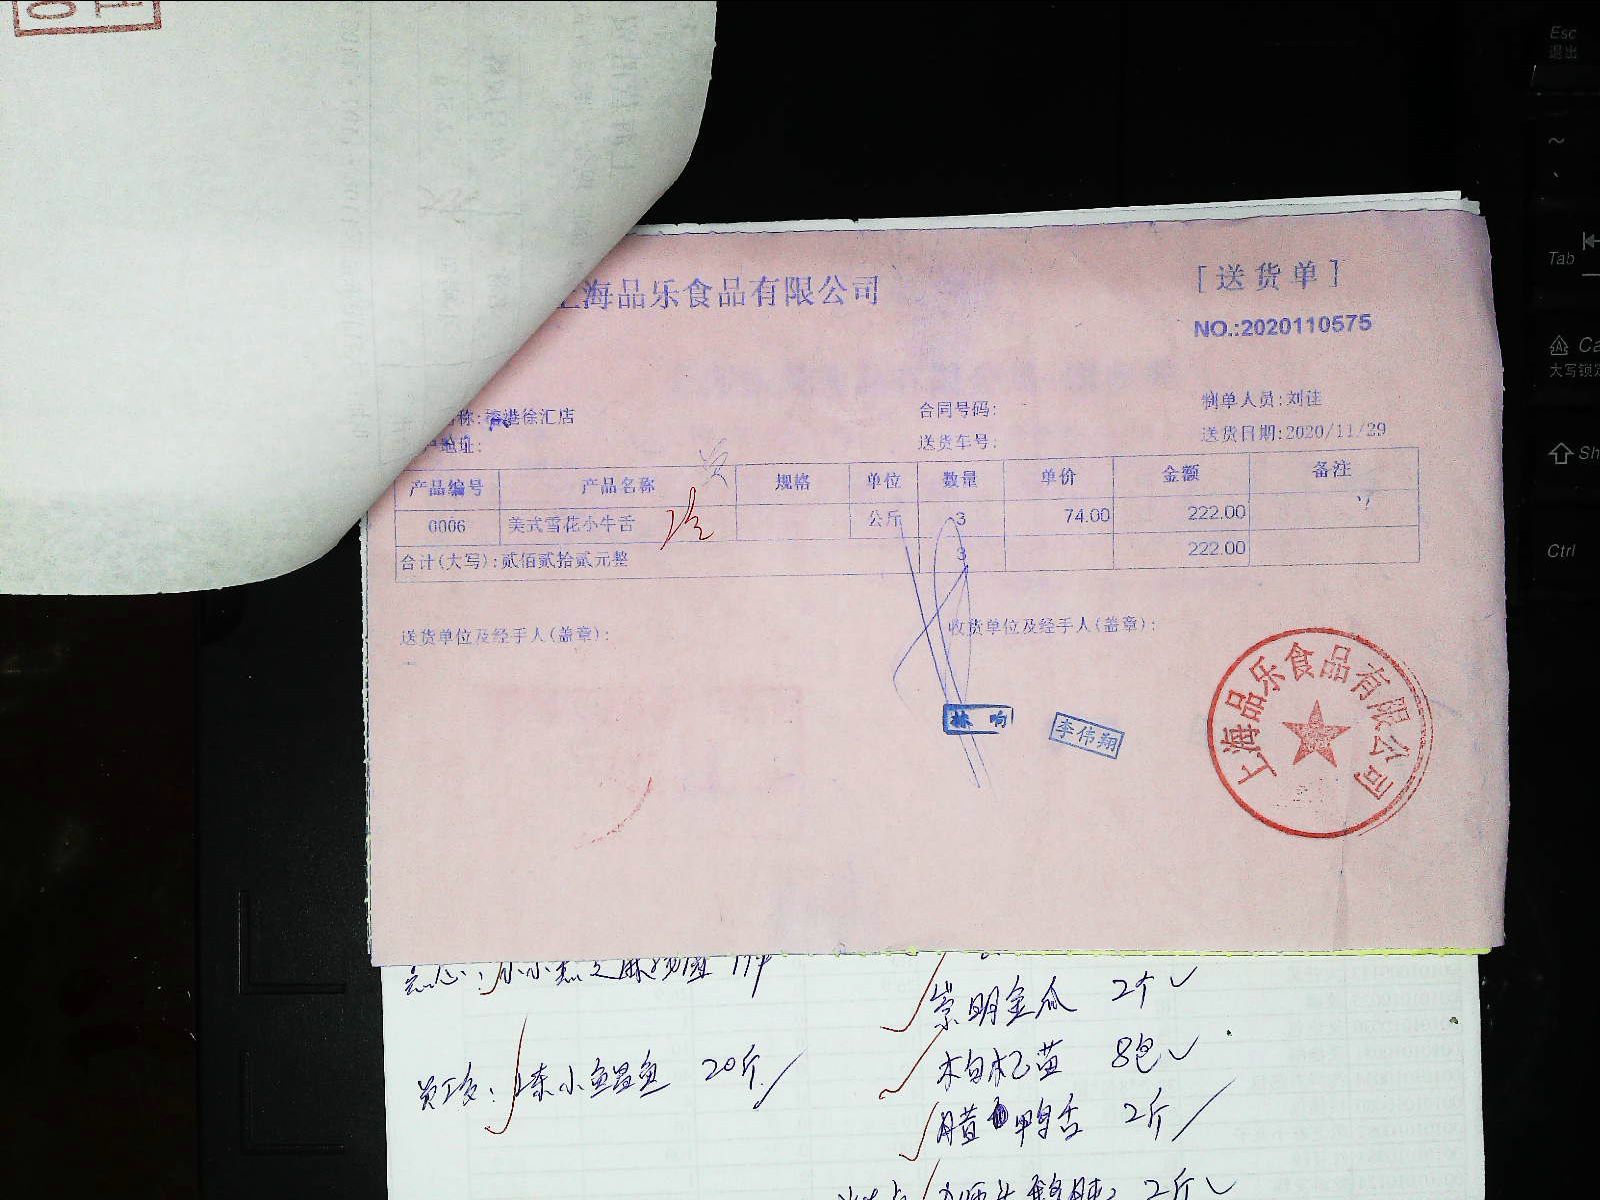 上海品乐食品有限公司
[送货单]
NO.:2020110575
称:榕港徐汇店
合同号码:
制单人员:刘佳
户地址:
送货车号:
送货日期:2020/11/29
产品编号 产品名称 规格 单位 数量 单价 金额 备注
0006 美式雪花小牛舌 公斤 3 74.00 222.00
合计(大写):贰佰贰拾贰元整 3 222.00
送货单位及经手人(盖章):
收货单位及经手人(盖章):
林 响
李伟翔
上海品乐食品有限公司
崇明金瓜 2个
20斤
8包
鸭舌 2斤
2斤
Esc
退出
~
Tab
Ca
大写锁定
Sh
Ctrl